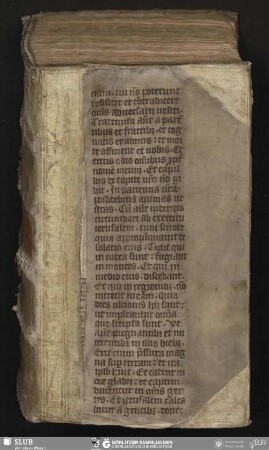 tiam: cui nō poterunt
resistere et cōtradicere
om̄s adversarii vestri.
Trademini aūt a paren
tibus et fratrib; et cog
natis et amicis: et mor
te afficient ex vobis. Et
eritis odio om̄ibus ppt
nomē meum. Et capil
lus de capite vr̄o nō pe
ribit. In paciencia vrā
possidebitis animas ve
stras. Cū aūt videritis
circumdari ab exercitu
ierusalem: tunc scitote
quia appropīquavit de
solatio eius. Tunc qui
in iudea sunt: fugiant
in montes. Et qui in
medio eius: discedant.
Et qui in regionib;: nō
intrent in eam. quia
dies ultionis hii sunt:
ut impleantur om̄ia
que scripta sunt. Ve
aūt pregnantib; et nu
trientib; in illis dieb;.
Erit enim pssura mag
na sup terram: et ira
pplo huic. Et cadent in
ore gladii: et captivi
ducentur in om̄s gen
tes. Et ierusalem calca
bitur a gentib;: donec
SLUB
Wir führen Wissen.
GÖRLITZER SAMMLUNGEN